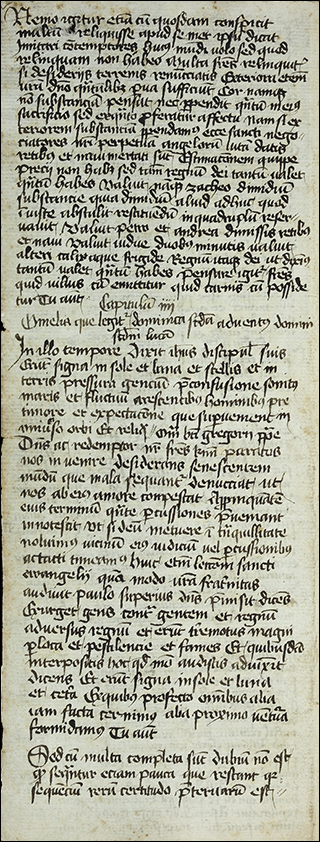 Nemo igitur etiā cū quosdam conspicit
multa reliquisse apud se met ipsū dicat
Imitari cōtemptores huius mūdi volo sed quod
relinquam non habeo Multa frēs relinquit'
si desiderijs terrenis renunciatis Exteriora etem̄
nr̄a dn̄o quālibet pua sufficiūt Cor namqȝ
nō substanciā pensat nec ppendit q̄ntū in eius
sacrificio sed ex q̄nto pferatur affectu nam si ex
teriorem substanciā ppendamus ecce sancti nego
ciatores nr̄i perpetuā angelorum vitā datis
retibus et naui mercati sūt Estimacionem quippe
precij non habꝫ sed tam̄ regnū dei tantū valet
q̄ntū habes Valuit namqȝ zacheo dimidiū
substancie quia dimidiū aliud ad hoc quod
iniuste abstulit restituendū in quadruplū reser
uauit Valuit petro et andrea dimissis retibus
et naui Valuit vidue duobus minutis valuit
alteri calix aque frigide Regnū itaqȝ dei ut diximus
tantū valet q̄ntū habes Pensate igitur frēs
quid vilius cū emittitur quid carius cū posside
tur Tu aut
Capitulum iiij
Omelia que legitur dominica scd̄a aduentus domini
scdm̄ lucā
In illo tempore Dixit ihus discipulis suis
Erūt signa in sole et luna et stellis et in
terris pressura genciū p confusione sonitus
maris et fluctuū arescentibus hominibus pre
timore et expectacione que supuenient
uniuerso orbi Et reliq̄ Om̄l bt̄i gregorij ppe
Dn̄s ac redemptor nr̄ frēs kmi paratos
nos inuenire desiderans senescentem
mūdū que mala sequantur denuncciat ut
nos ab eius amore compescat Appropinquātē
eius terminū q̄nte percussiones preueniant
innotescit Ut si deū metuere in tranquillitate
nolumus vicinū eius iudiciū vel percussionibus
attacti timeamus Huic etem̄ lectioni sancti
ewangelij quā modo vr̄a fraternitas
audiuit paulo superius dn̄s premisit dicens
Exurget gens contra gentem et regnū
aduersus regnū et erūt terremotus magni
per loca et pestilencie et fames Et quibusdā
Interpositis hoc quod modo audistis adiunxit
dicens Et erūt signa in sole et luna
et cetera Ex quibus profecto omnibus alia
iam facta cernimus alia proximo ventura
formidamus Tu aut
Sed cū multa completa sūt dubiū nō est
quod sequantur eciam pauca que restant quia
sequenciū rerū certitudo preteritarū est